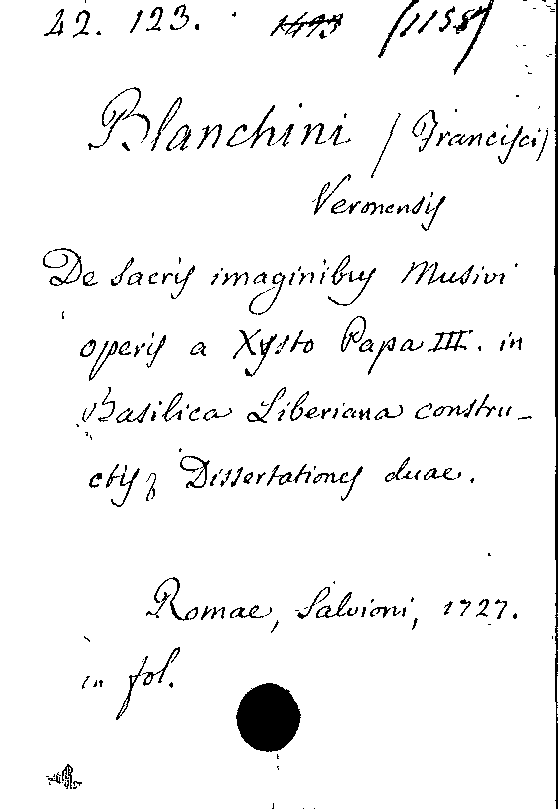 42. 123. 1493 (1158)
Blanchini / Francisci)
Veronensis
De sacris imaginibus Musivi
operis a Xysto Papa III. in
Basilica Liberiana constru-
ctis, Dissertationes duae.
Romae, Salvioni, 1727.
in fol.